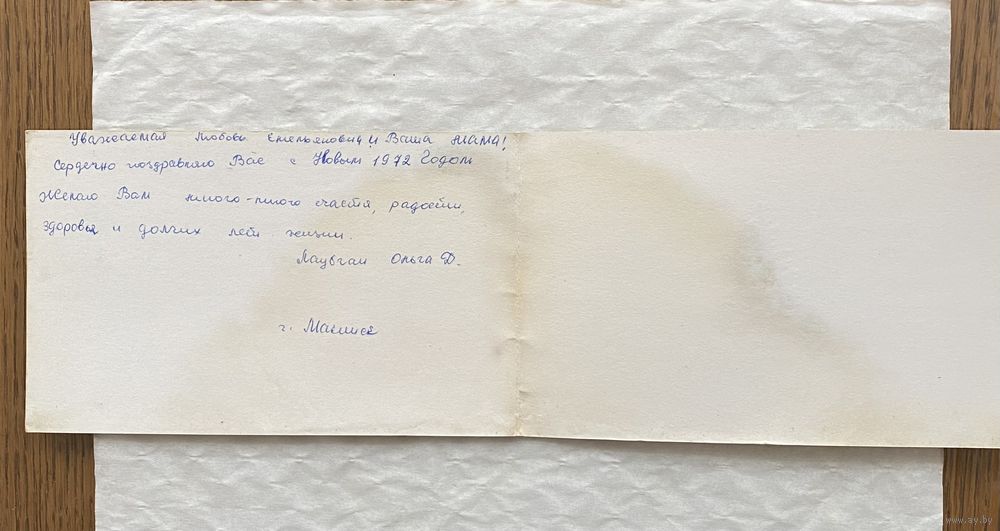 Уважаемая Любовь Емельяновна и Ваша мама!
Сердечно поздравляю Вас с Новым 1972 Годом
Желаю Вам много-много счастья, радости,
здоровья и долгих лет жизни.
Ольга Д.
г.
www.ay.by